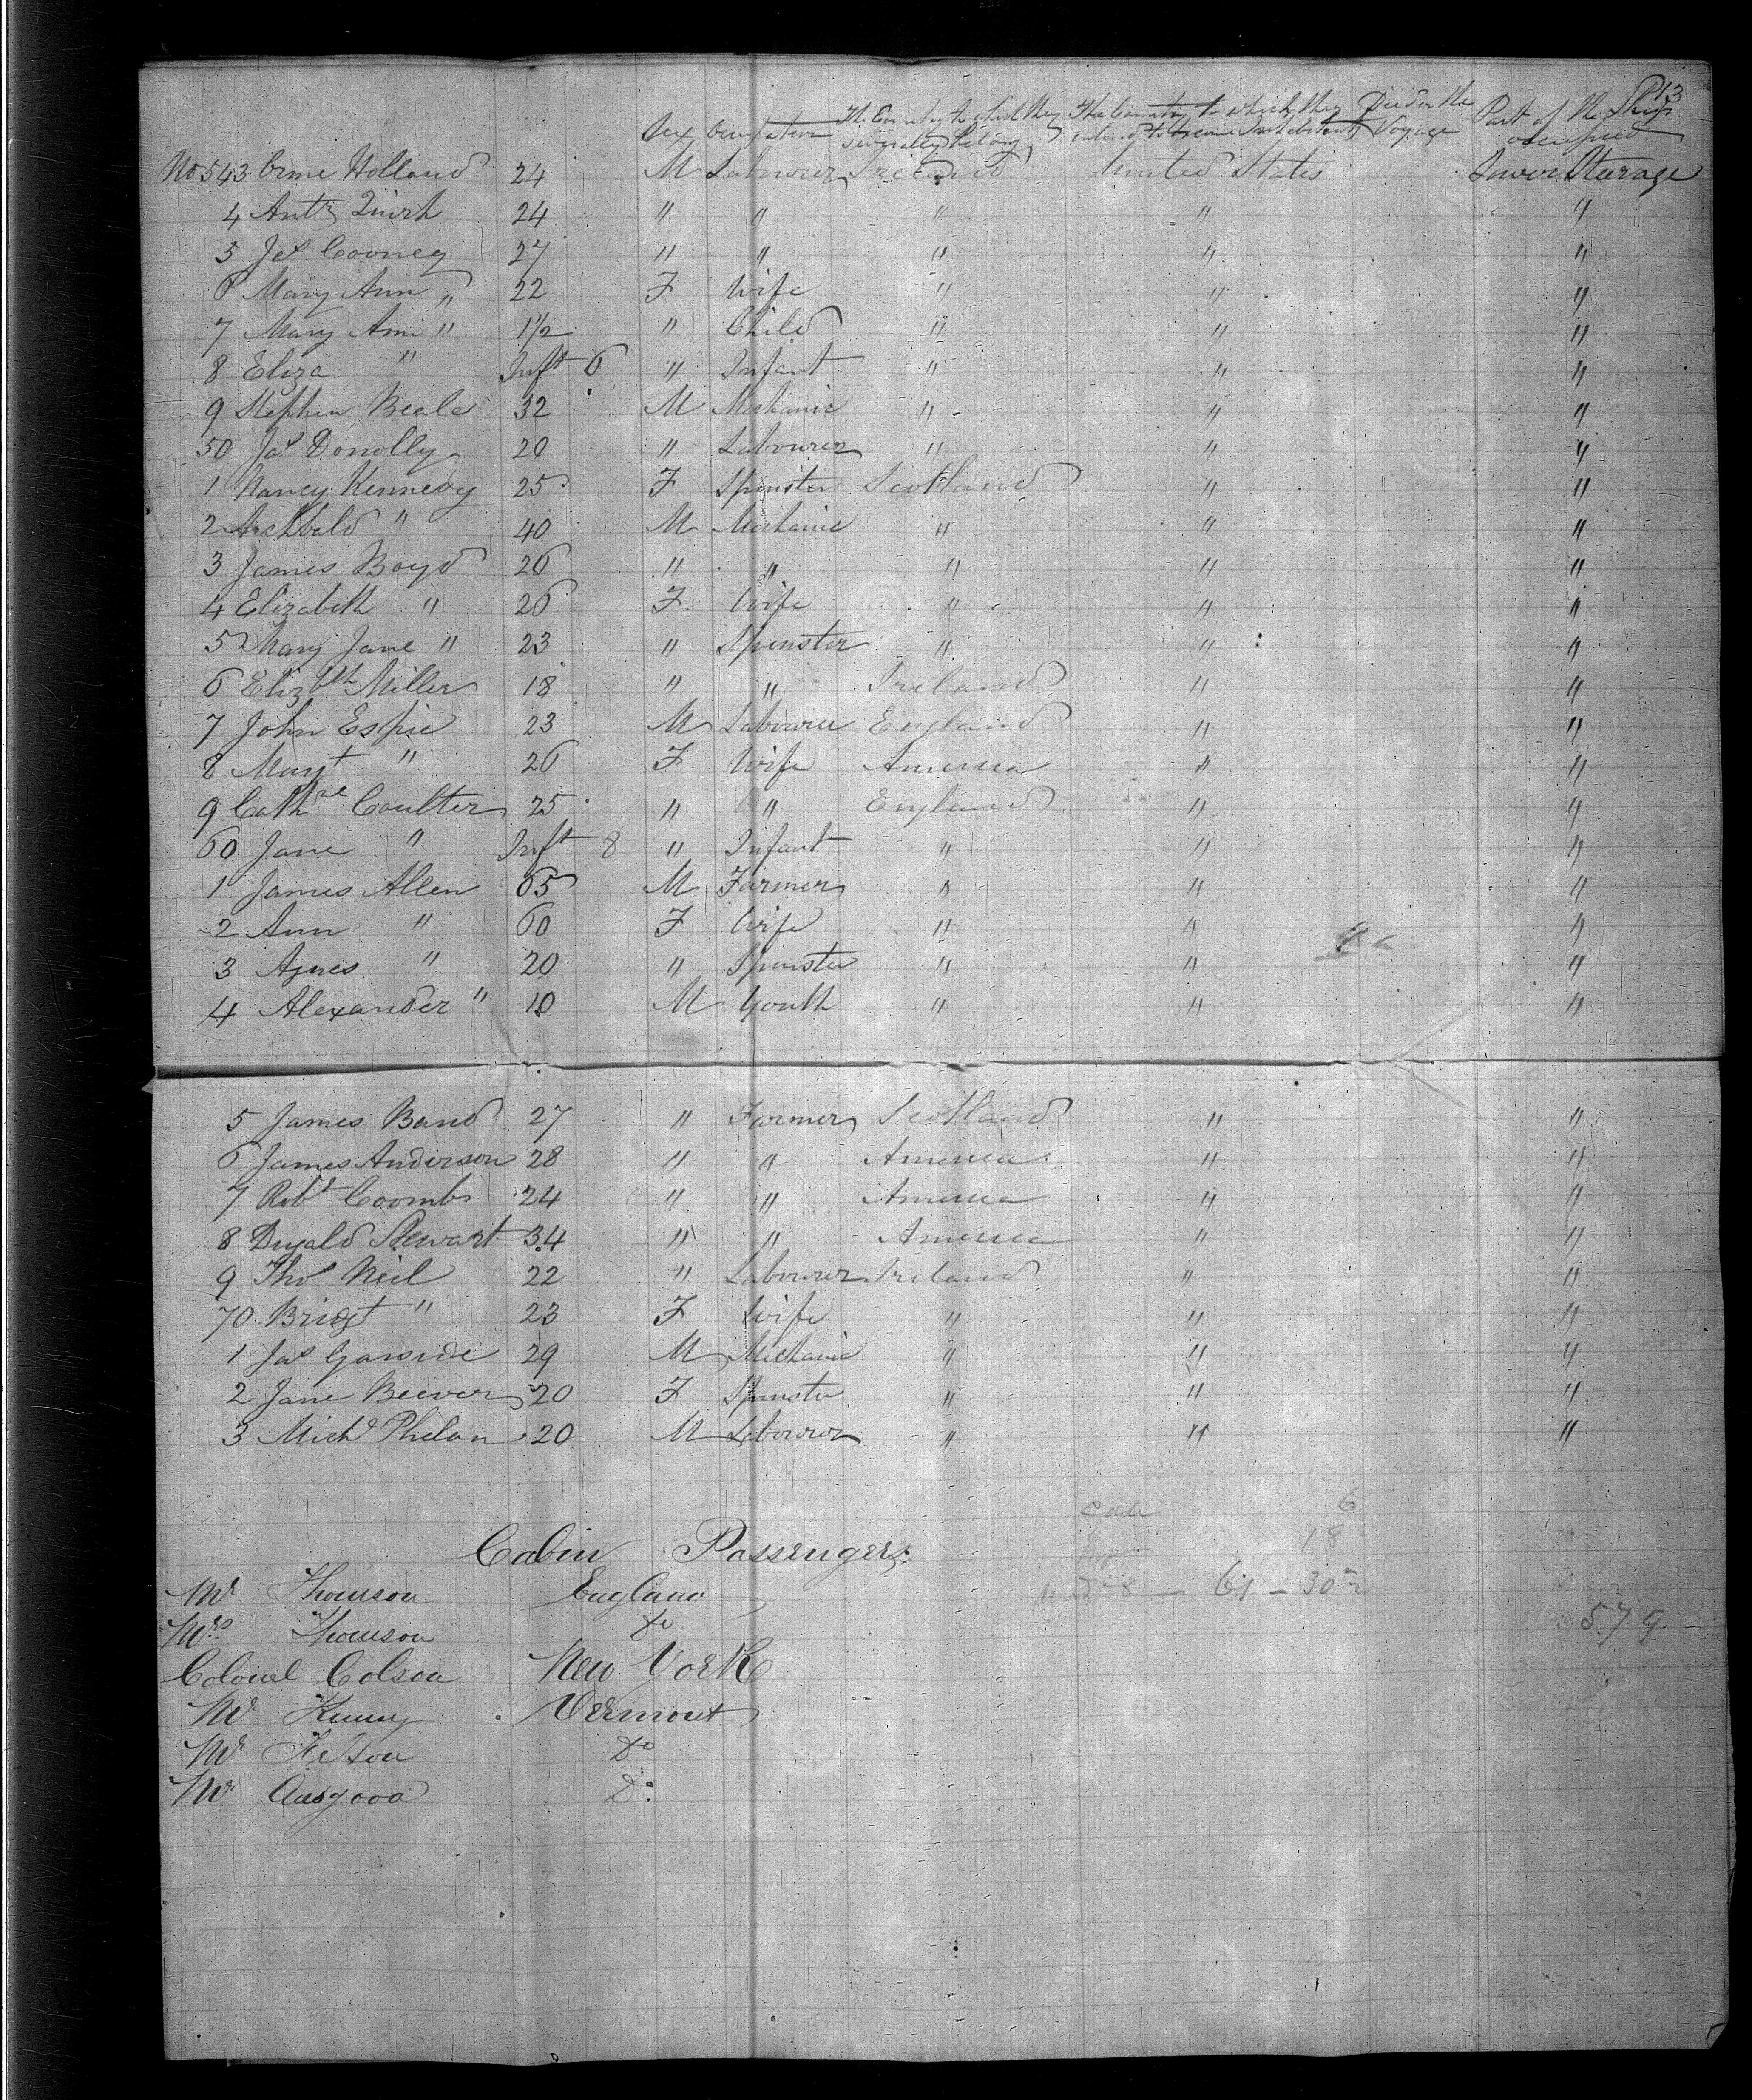 P 13
Sex Occupation The Country to which they severally belong The Country to which they intend to become Inhabitants Died on the Voyage Part of the Ship occupied
No 543 Orme Holland 24 M Labourer Ireland United States Lower Steerage
4 Anty Quirk 24 " " " " "
5 Jas Cooney 27 " " " " "
6 Mary Ann " 22 F Wife " " "
7 Mary Ann " 1½ " Child " " "
8 Eliza " Inft 6 " Infant " " "
9 Stephen Beale 32 M Mechanic " " "
50 Jas Donolly 20 " Labourer " " "
1 Nancy Kennedy 25 F Spinster Scotland " "
2 Archbald " 40 M Mechanic " " "
3 James Boyd 26 " " " " "
4 Elizabeth " 26 F Wife " " "
5 Mary Jane " 23 " Spinster " " "
6 Elizbth Miller 18 " " Ireland " "
7 John Espie 23 M Labourer England " "
8 Margt " 26 F Wife America " "
9 Cathne Coulter 25 " " England " "
60 Jane " Inft 8 " Infant " " "
1 James Allen 65 M Farmer " " "
2 Ann " 60 F Wife " " "
3 Agnes " 20 " Spinster " " "
4 Alexander " 10 M Youth " " "
5 James Band 27 " Farmer Scotland " "
6 James Anderson 28 " " America " "
7 Robt Coombs 24 " " America " "
8 Dugald Stewart 34 " " America " "
9 Thos Neil 22 " Labourer Ireland " "
70 Bridgt " 23 F Wife " " "
1 Jas Garside 29 M Mechanic " " "
2 Jane Beever 20 F Spinster " " "
3 Michl Phelan 20 M Labourer " " "
6
18
Cabin Passengers
61 - 302
Mr Thomson England
579
Mrs Thomson Do
Colonel Colson New York
Mr Kenny Vermont
Mr Do
Mr Do